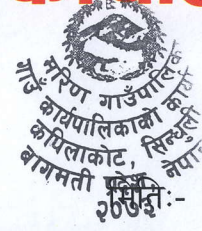 मरिण गाउँपालिका
गाउँ कार्यपालिकाको कार्या
कपिलाकोट, सिन्धुली
बागमती प्रदेश, नेपाल
२०७३
मिति:-